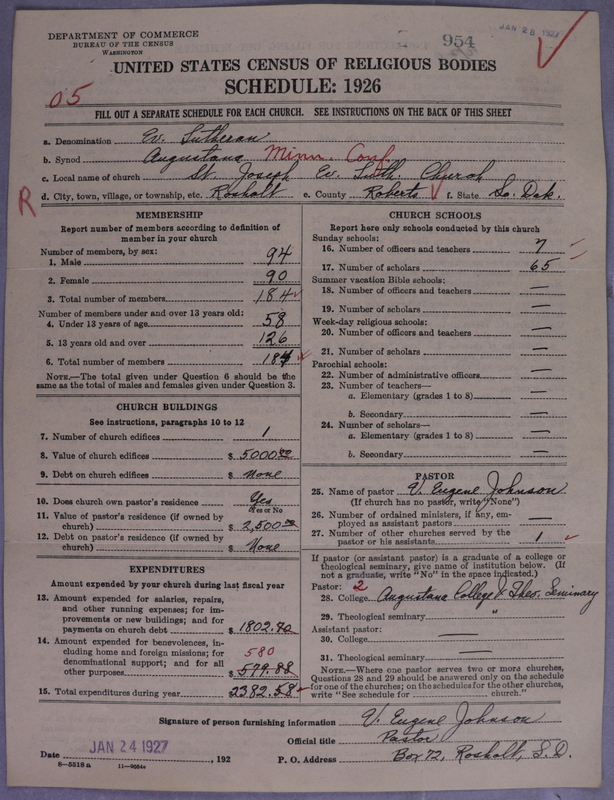 DEPARTMENT OF COMMERCE
BUREAU OF THE CENSUS
WASHINGTON
954
JAN 28 1927
UNITED STATES CENSUS OF RELIGIOUS BODIES
SCHEDULE: 1926
05
FILL OUT A SEPARATE SCHEDULE FOR EACH CHURCH. SEE INSTRUCTIONS ON THE BACK OF THIS SHEET
a. Denomination Ev. Lutheran
b. Synod Augustana Minn. Conf.
c. Local name of church St. Joseph Ev. Luth. Church
R
d. City, town, village, or township, etc. Rosholt e. County Roberts f. State So. Dak.
MEMBERSHIP
Report number of members according to definition of
member in your church
Number of members, by sex:
1. Male 94
2. Female 90
3. Total number of members 184
Number of members under and over 13 years old:
4. Under 13 years of age 58
5. 13 years old and over 126
6. Total number of members 184
NOTE.—The total given under Question 6 should be the
same as the total of males and females given under Question 3.
CHURCH BUILDINGS
See instructions, paragraphs 10 to 12
7. Number of church edifices 1
8. Value of church edifices $ 5000.00
9. Debt on church edifices $ None
10. Does church own pastor's residence Yes
Yes or No
11. Value of pastor's residence (if owned by
church) $ 2,500.00
12. Debt on pastor's residence (if owned by
church) $ None
EXPENDITURES
Amount expended by your church during last fiscal year
13. Amount expended for salaries, repairs,
and other running expenses; for im-
provements or new buildings; and for
payments on church debt $ 1802.70
14. Amount expended for benevolences, in-
cluding home and foreign missions; for
denominational support; and for all
other purposes 580
$ 579.88
15. Total expenditures during year $ 2382.58
CHURCH SCHOOLS
Report here only schools conducted by this church
Sunday schools:
16. Number of officers and teachers 7
17. Number of scholars 65
Summer vacation Bible schools:
18. Number of officers and teachers —
19. Number of scholars —
Week-day religious schools:
20. Number of officers and teachers —
21. Number of scholars —
Parochial schools:
22. Number of administrative officers —
23. Number of teachers—
a. Elementary (grades 1 to 8) —
b. Secondary —
24. Number of scholars—
a. Elementary (grades 1 to 8) —
b. Secondary —
PASTOR
25. Name of pastor V. Eugene Johnson
(If church has no pastor, write "None")
26. Number of ordained ministers, if any, em-
ployed as assistant pastors —
27. Number of other churches served by the
pastor or his assistants 1
If pastor (or assistant pastor) is a graduate of a college or
theological seminary, give name of institution below. (If
not a graduate, write "No" in the space indicated.)
Pastor: 2
28. College Augustana College & Theo. Seminary
29. Theological seminary "
Assistant pastor:
30. College —
31. Theological seminary —
NOTE.—Where one pastor serves two or more churches,
Questions 28 and 29 should be answered only on the schedule
for one of the churches; on the schedules for the other churches,
write "See schedule for church."
Signature of person furnishing information V. Eugene Johnson
Official title Pastor
Date JAN 24 1927, 192 P. O. Address Box 72, Rosholt, S. D.